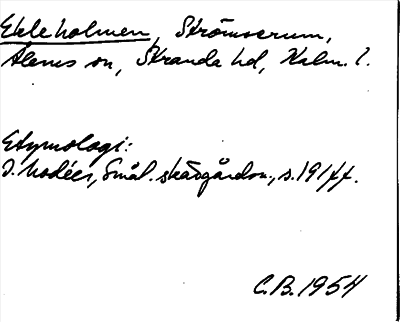 Ekleholmen, Strömserum,
Ålems sn, Stranda hd, Kalm. l.
Etymologi:
I. Modéer, Smål. skärgårdsn., s. 191 ff.
C.B. 1954